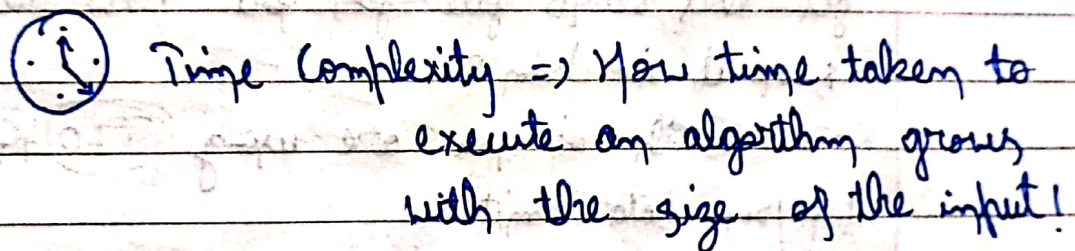 Time Complexity => How time taken to
execute an algorthm grows
with the size of the input!